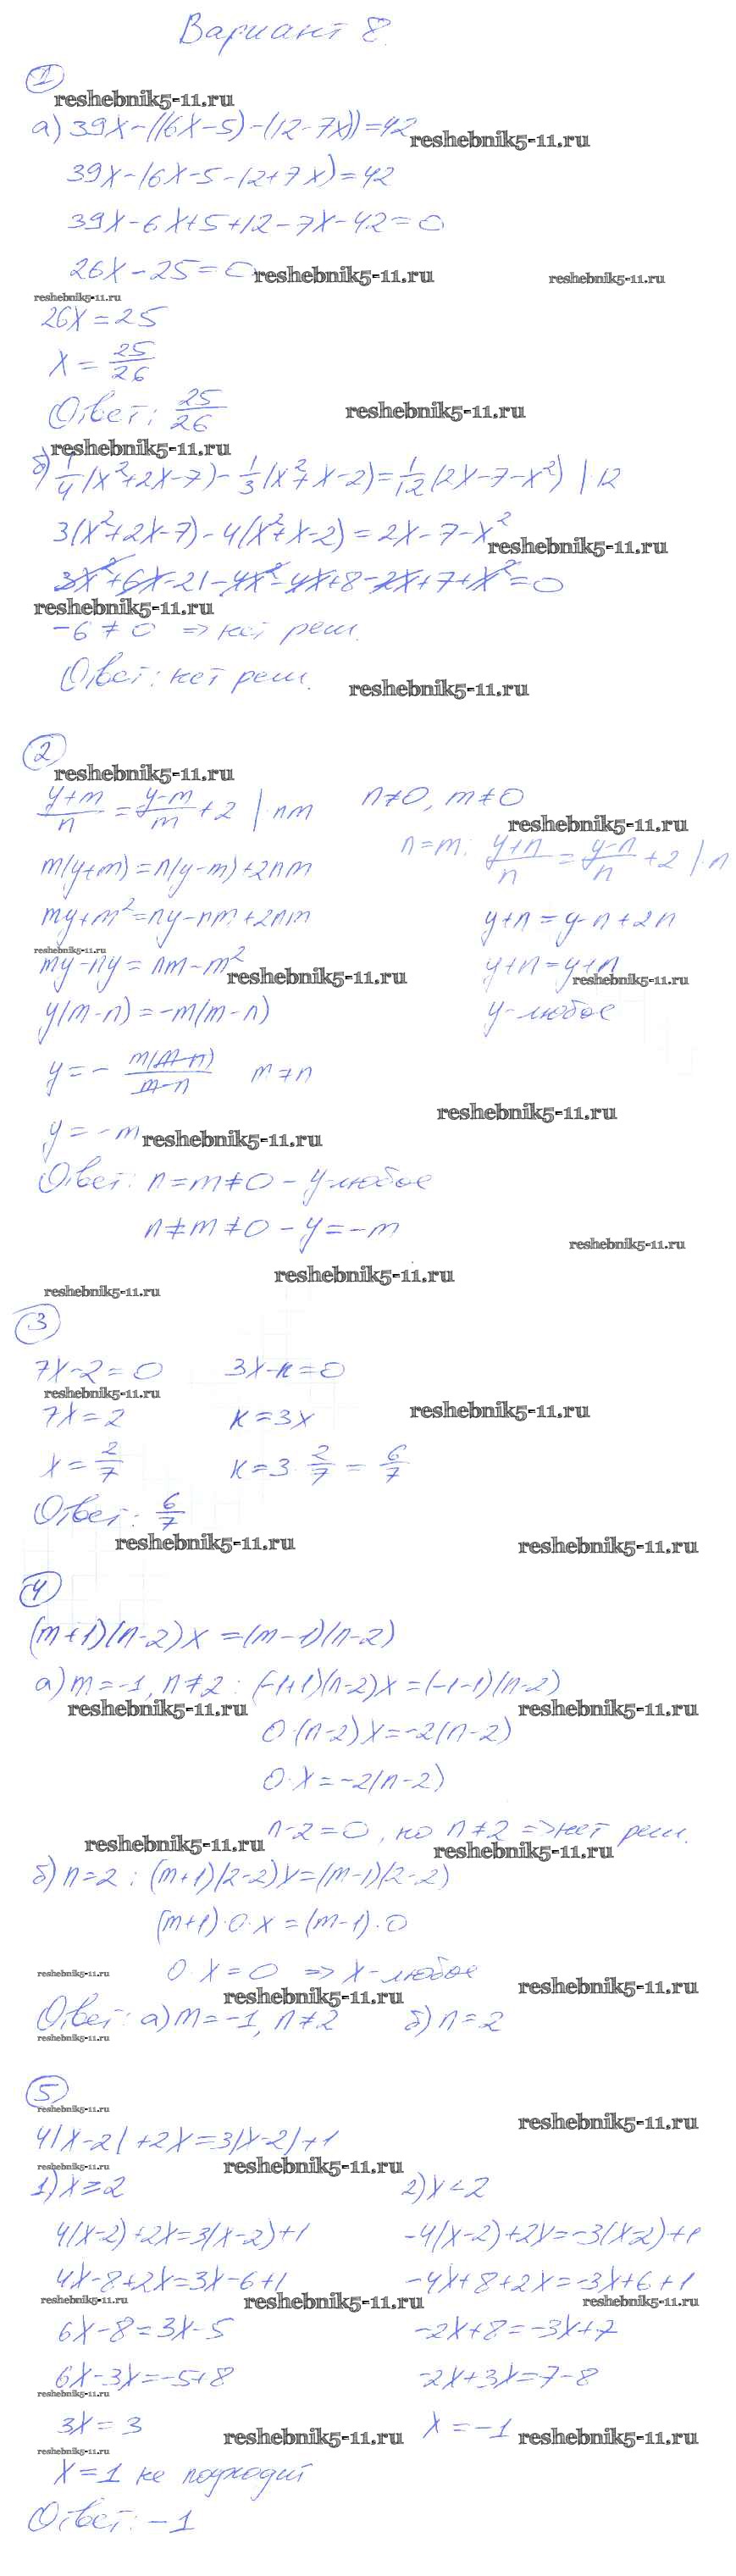 Вариант 8.
1
reshebnik5-11.ru
а) 39x-((6x-5)-(12-7x))=42
reshebnik5-11.ru
39x-(6x-5-12+7x)=42
39x-6x+5+12-7x-42=0
26x-25=0
reshebnik5-11.ru reshebnik5-11.ru
reshebnik5-11.ru
26x=25
x=25/26
Ответ: 25/26
reshebnik5-11.ru
reshebnik5-11.ru
б) 1/4(x²+2x-7)-1/3(x²+x-2)=1/12(2x-7-x²) |·12
3(x²+2x-7)-4(x²+x-2)=2x-7-x²
reshebnik5-11.ru
3x²+6x-21-4x²-4x+8-2x+7+x²=0
reshebnik5-11.ru
-6≠0 ⇒ нет реш.
Ответ: нет реш.
reshebnik5-11.ru
2
reshebnik5-11.ru
(y+m)/n=(y-m)/m+2 |·nm n≠0, m≠0
reshebnik5-11.ru
n=m: (y+n)/n=(y-n)/n+2 |·n
m(y+m)=n(y-m)+2nm
my+m²=ny-nm+2nm y+n=y-n+2n
reshebnik5-11.ru
my-ny=nm-m² y+n=y+n
reshebnik5-11.ru reshebnik5-11.ru
y(m-n)=-m(m-n) y-любое
y=-m(m-n)/(m-n) m≠n
reshebnik5-11.ru
y=-m
reshebnik5-11.ru
Ответ: n=m≠0 - y-любое
n≠m≠0 - y=-m
reshebnik5-11.ru
reshebnik5-11.ru
reshebnik5-11.ru
3
7x-2=0 3x-к=0
reshebnik5-11.ru
7x=2 к=3x
reshebnik5-11.ru
x=2/7 к=3·2/7=6/7
Ответ: 6/7
reshebnik5-11.ru reshebnik5-11.ru
4
(m+1)(n-2)x=(m-1)(n-2)
а) m=-1, n≠2: (-1+1)(n-2)x=(-1-1)(n-2)
reshebnik5-11.ru reshebnik5-11.ru
0·(n-2)x=-2(n-2)
0·x=-2(n-2)
n-2=0, но n≠2 ⇒ нет реш.
reshebnik5-11.ru reshebnik5-11.ru
б) n=2: (m+1)(2-2)x=(m-1)(2-2)
(m+1)·0·x=(m-1)·0
reshebnik5-11.ru
0·x=0 ⇒ x-любое
reshebnik5-11.ru reshebnik5-11.ru
Ответ: а) m=-1, n≠2 б) n=2
reshebnik5-11.ru
5
reshebnik5-11.ru
reshebnik5-11.ru
4|x-2|+2x=3|x-2|+1
reshebnik5-11.ru reshebnik5-11.ru
1) x≥2 2) x<2
4(x-2)+2x=3(x-2)+1 -4(x-2)+2x=-3(x-2)+1
4x-8+2x=3x-6+1 -4x+8+2x=-3x+6+1
reshebnik5-11.ru reshebnik5-11.ru reshebnik5-11.ru
6x-8=3x-5 -2x+8=-3x+7
6x-3x=-5+8 -2x+3x=7-8
reshebnik5-11.ru
3x=3 x=-1
reshebnik5-11.ru reshebnik5-11.ru
reshebnik5-11.ru
x=1 не подходит
Ответ: -1